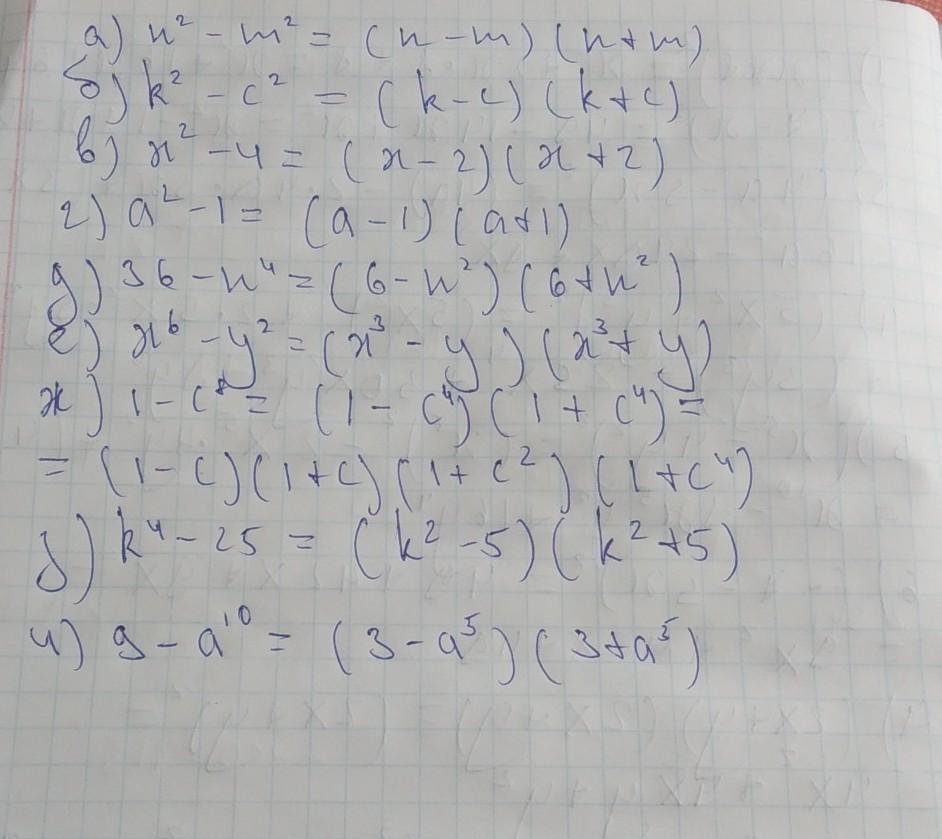 а) n² - m² = (n - m) (n + m)
б) k² - c² = (k - c) (k + c)
в) x² - 4 = (x - 2) (x + 2)
г) a² - 1 = (a - 1) (a + 1)
д) 36 - n⁴ = (6 - n²) (6 + n²)
е) x⁶ - y² = (x³ - y) (x³ + y)
ж) 1 - c⁸ = (1 - c⁴) (1 + c⁴) =
= (1 - c) (1 + c) (1 + c²) (1 + c⁴)
з) k⁴ - 25 = (k² - 5) (k² + 5)
и) 9 - a¹⁰ = (3 - a⁵) (3 + a⁵)